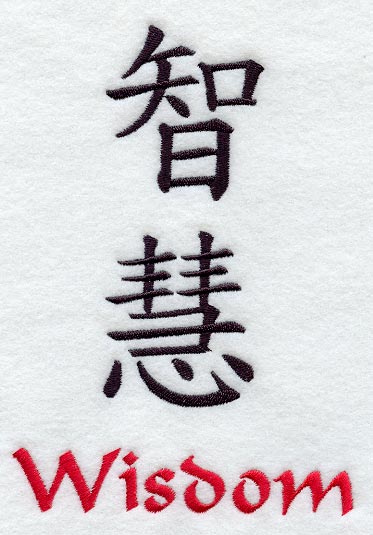 智
慧
Wisdom